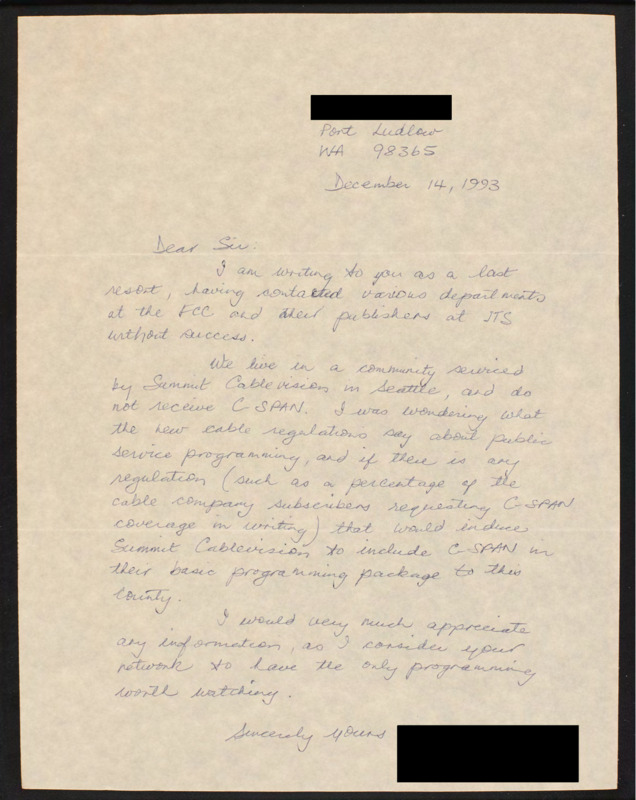 Port Ludlow
WA 98365
December 14, 1993
Dear Sir:
I am writing to you as a last
resort, having contacted various departments
at the FCC and their publishers at ITS
without success.
We live in a community serviced
by Summit Cablevision in Seattle, and do
not receive C-SPAN. I was wondering what
the new cable regulations say about public
service programming, and if there is any
regulation (such as a percentage of the
cable company subscribers requesting C-SPAN
coverage in writing) that would induce
Summit Cablevision to include C-SPAN in
their basic programming package to this
County.
I would very much appreciate
any information, as I consider your
network to have the only programming
worth watching.
Sincerely yours